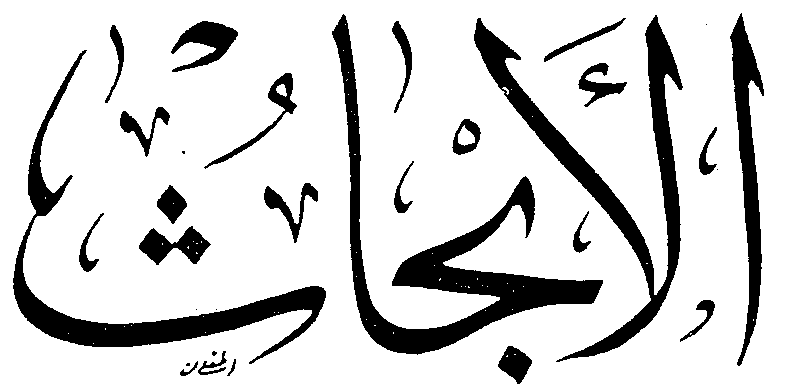 الأَبْحاث